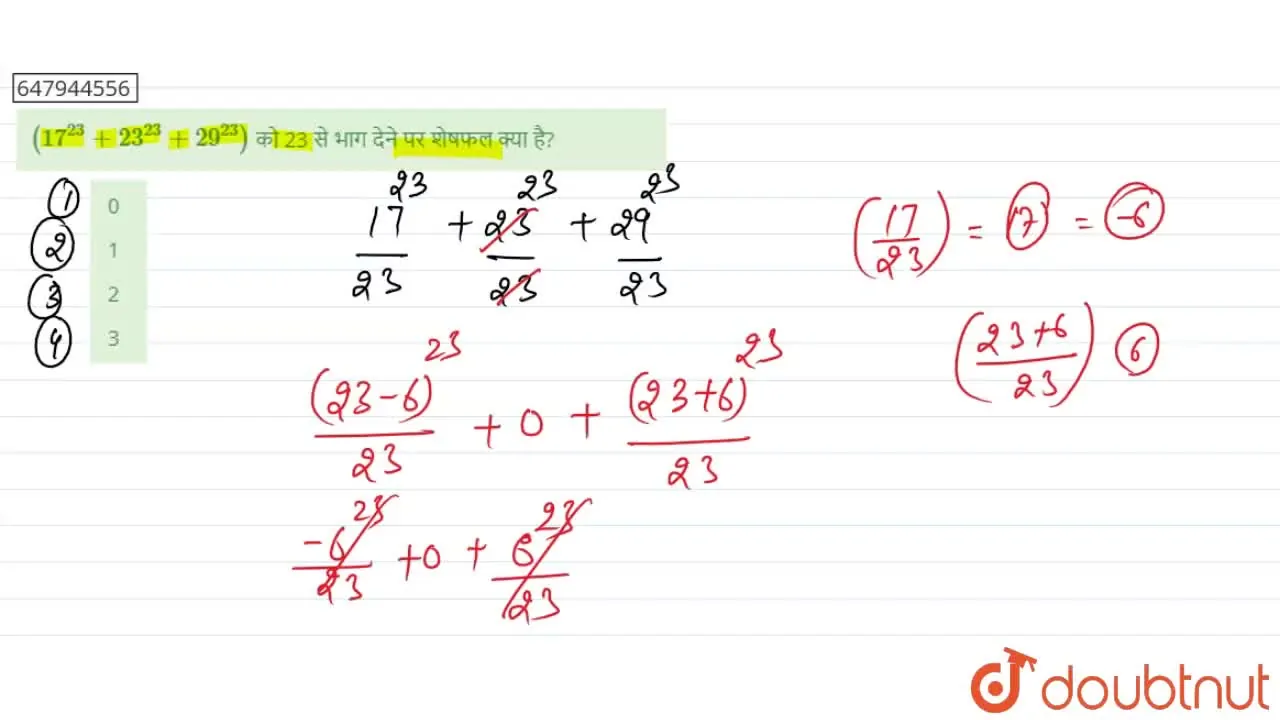 647944556
(17²³ + 23²³ + 29²³) को 23 से भाग देने पर शेषफल क्या है?
① 0
② 1
③ 2
④ 3
17²³/23 + 23²³/23 + 29²³/23
(23-6)²³/23 + 0 + (23+6)²³/23
-6²³/23 + 0 + 6²³/23
(17/23) = 17 = -6
(23+6/23) 6
doubtnut